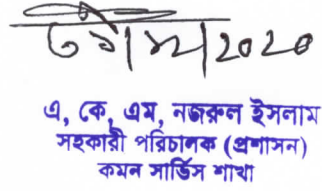 এ, কে, এম, নজরুল ইসলাম
সহকারী পরিচালক (প্রশাসন)
কমন সার্ভিস শাখা